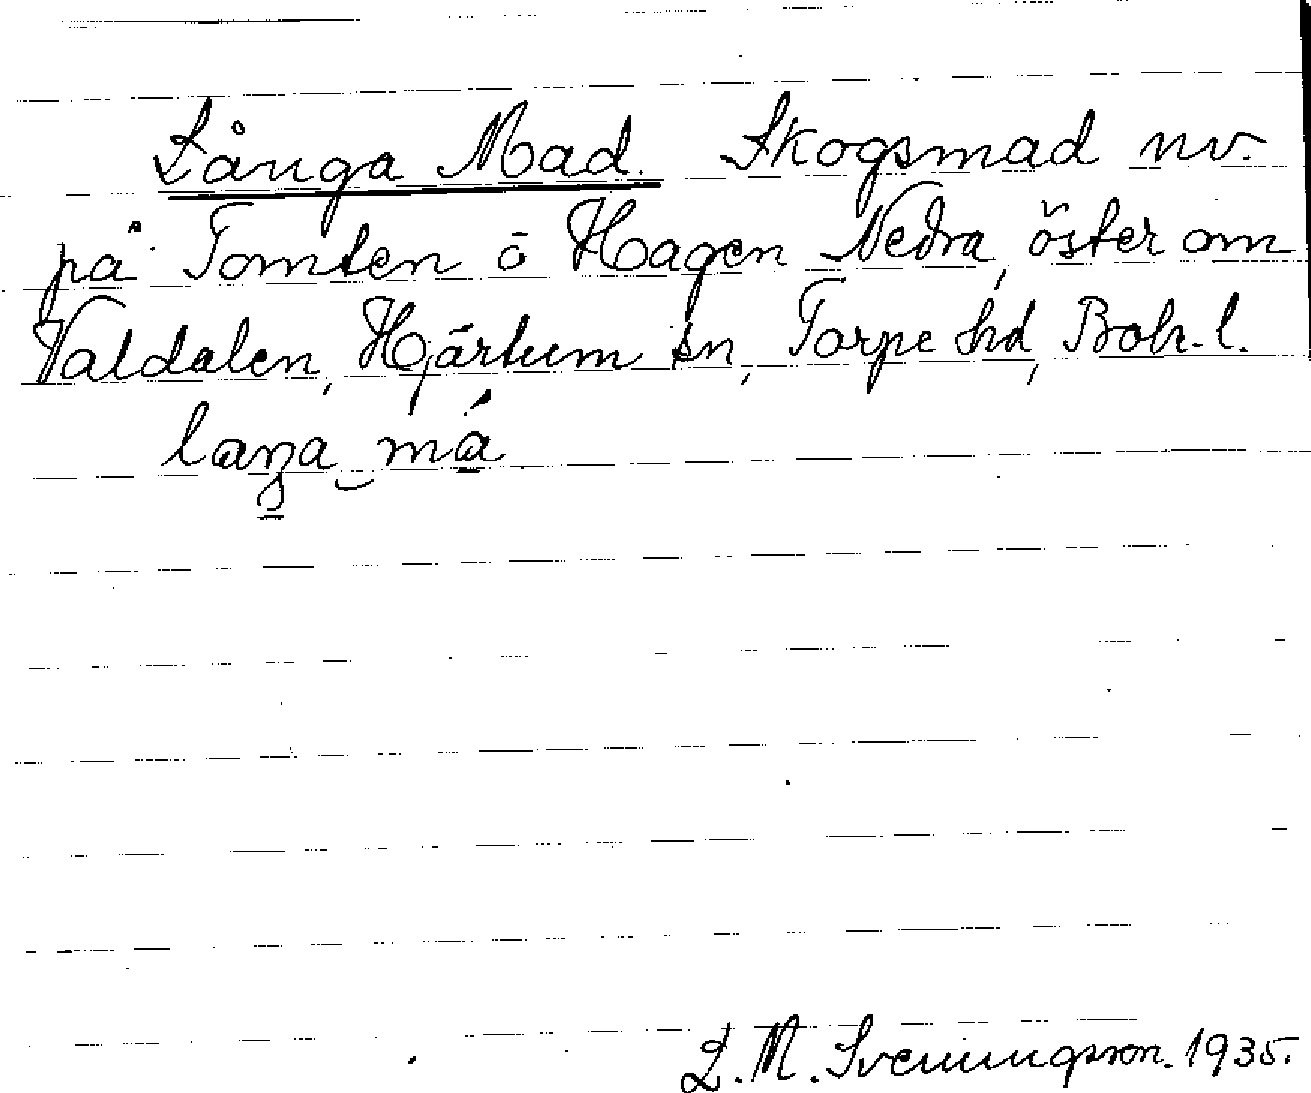 Långa Mad. Skogsmad nv.
på Tomten ō Hagen Nedra, öster om
Valdalen, Hjärtum sn, Torpe hd, Boh. l.
laŋa må
L. M. Svenungsson. 1935.